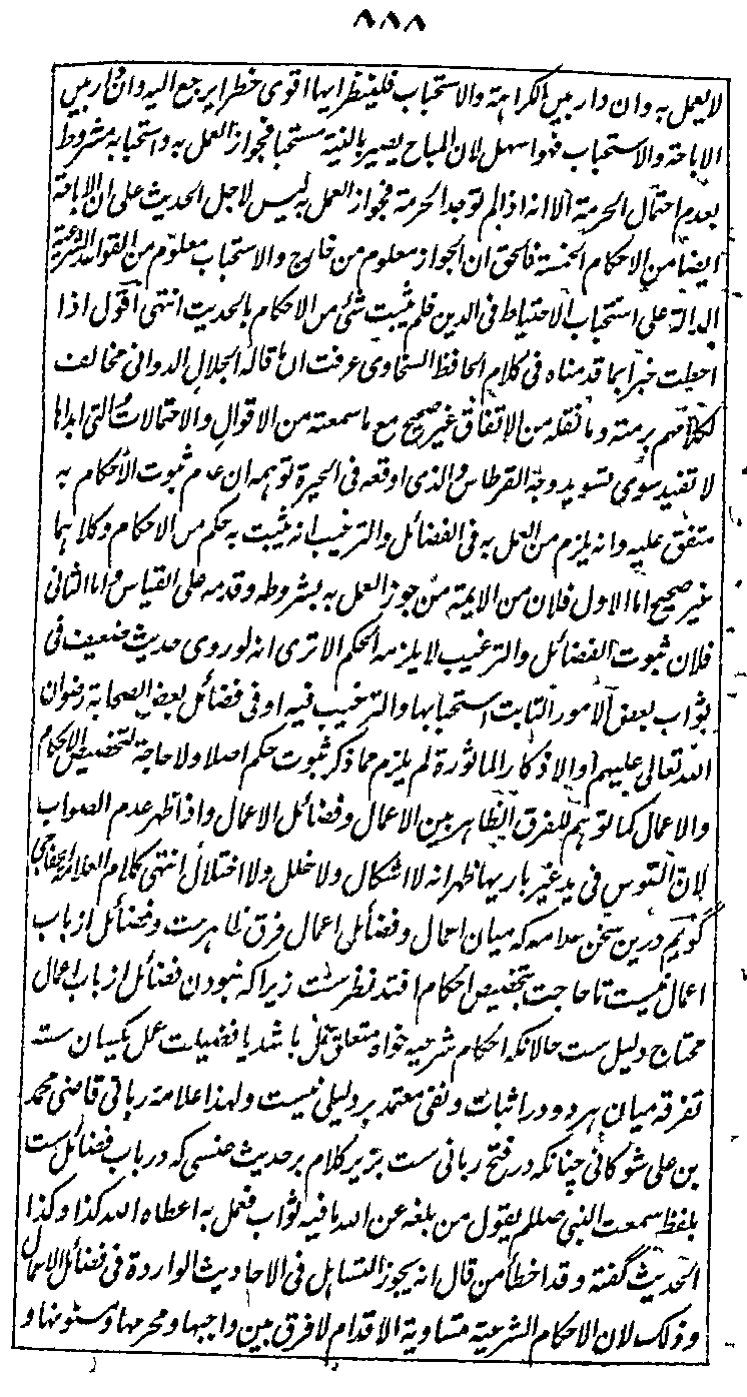 ٨٨٨
لا يعمل به وان دار بين الكراهة والاستحباب فلينظر ايها اقوى خطرا يرجع اليه وان دار بين
الاباحة والاستحباب فهو اسهل لان المباح يصير بالنية مستحبا فجواز العمل به واستحبابه مشروط
بعدم احتمال الحرمة الا انه اذا لم توجد الحرمة فجواز العمل به ليس لاجل الحديث على ان الاباحة
ايضا من الاحكام الخمسة فالحق ان الجواز معلوم من خارج والاستحباب معلوم من القواعد الشرعية
الدالة على استحباب الاحتياط فى الدين فلم يثبت شئ من الاحكام بالحديث انتهى اقول اذا
احطت خبرا بما قدمناه فى كلام الحافظ السخاوى عرفت ان ما قاله الجلال الدوانى مخالف
لكلامهم برمته وما نقله من الاتفاق غير صحيح مع ما سمعته من الاقوال والاحتمالات التى ابداها
لا تفيد سوى تسويد وجه القرطاس والذى اوقعه فى الحيرة توهمه ان عدم ثبوت الاحكام به
متفق عليه وانه يلزم من العمل به فى الفضائل والترغيب انه يثبت به حكم من الاحكام وكلاهما
غير صحيح اما الاول فلان من الايمة من جوز العمل به بشروطه وقدمه على القياس واما الثانى
فلان ثبوت الفضائل والترغيب لا يلزمه الحكم الا ترى انه لو روى حديث ضعيف فى
ثواب بعض الامور الثابت استحبابها والترغيب فيه او فى فضائل بعض الصحابة رضوان
الله تعالى عليهم او الاذكار الماثورة لم يلزم مما ذكر ثبوت حكم اصلا ولا حاجة لتخصيص الاحكام
والاعمال كما توهم للفرق الظاهر بين الاعمال وفضائل الاعمال واذا ظهر عدم الصواب
لان القوس فى يد غير باريها ظهر انه لا اشكال ولا خلل ولا اختلال انتهى كلام العلامة الخفاجى
گويم درين سخن علامه كه ميان اعمال وفضائل اعمال فرق ظاهرست وفضائل از باب
اعمال نيست تا حاجت بتخصيص احكام افتد نظرست زيرا كه نبودن فضائل از باب اعمال
محتاج دليل ست حالانكه احكام شرعيه خواه متعلق بعمل باشد يا فضيلت عمل يكسان ست
تفرقه ميان هر دو در اثبات ونفى معتمد بر دليلى نيست ولهذا علامۀ ربانى قاضى محمد
بن على شوكانى چنانكه در فتح ربانى ست بزير كلام بر حديث عنسى كه در باب فضائل ست
بلفظ سمعت النبى صللم يقول من بلغه عن الله ما فيه ثواب فعمل به اعطاه الله كذا وكذا
الحديث گفته وقد اخطأ من قال انه يجوز التساهل فى الاحاديث الواردة فى فضائل الاعمال
وذلك لان الاحكام الشرعية متساوية الاقدام لا فرق بين واجبها ومحرمها ومسنونها و